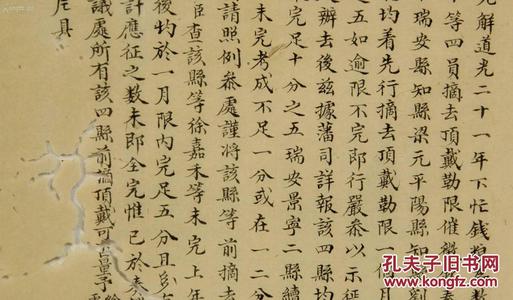 解道光二十一年下忙錢糧
等四員摘去頂戴勒限催
瑞安縣知縣梁元平陽縣知縣劉
均着先行摘去頂戴勒限一個月
之五如逾限不完即行嚴叅以示
辦去後茲據藩司詳報該四縣均
完足十分之五瑞安景寧二縣續
未完考成不足一分或在一二分
請照例叅處謹將該縣等前摘去
臣查該縣等徐嘉禾等未完上年
後均於一月限內完足五分且
計應征之數未即全完惟已於奏
議處所有該四縣前摘頂戴可否量予
具